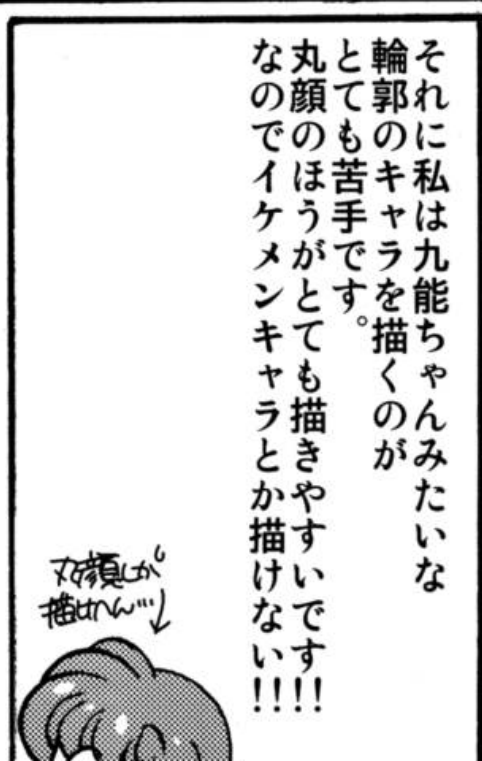 それに私は九能ちゃんみたいな
輪郭のキャラを描くのが
とても苦手です。
丸顔のほうがとても描きやすいです!!
なのでイケメンキャラとか描けない!!
丸顔しか
描けへん…